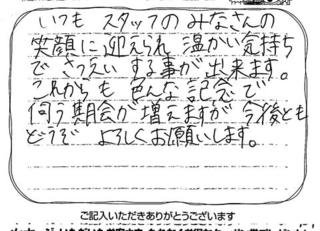 いつも スタッフの みなさんの
笑顔に迎えられ 温かい気持ち
で さつえい する事が 出来ます。
これからも 色んな 記念で
伺う期会が増えますが 今後とも
どうぞ よろしくお願いします。
ご記入いただきありがとうございます